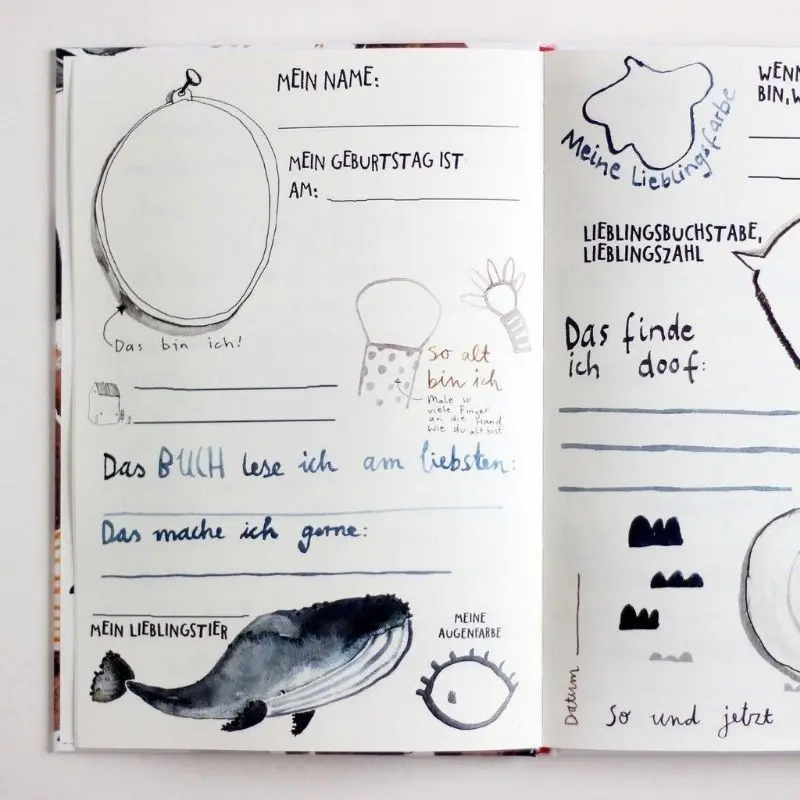 MEIN NAME:
MEIN GEBURTSTAG IST
AM:
Das bin ich!
So alt
bin ich
Male so
viele Finger
an die Hand
wie du alt bist.
Das BUCH lese ich am liebsten:
Das mache ich gerne:
MEIN LIEBLINGSTIER
MEINE
AUGENFARBE
Meine Lieblingsfarbe
WENN
BIN, W
LIEBLINGSBUCHSTABE,
LIEBLINGSZAHL
Das finde
ich doof:
Datum
So und jetzt